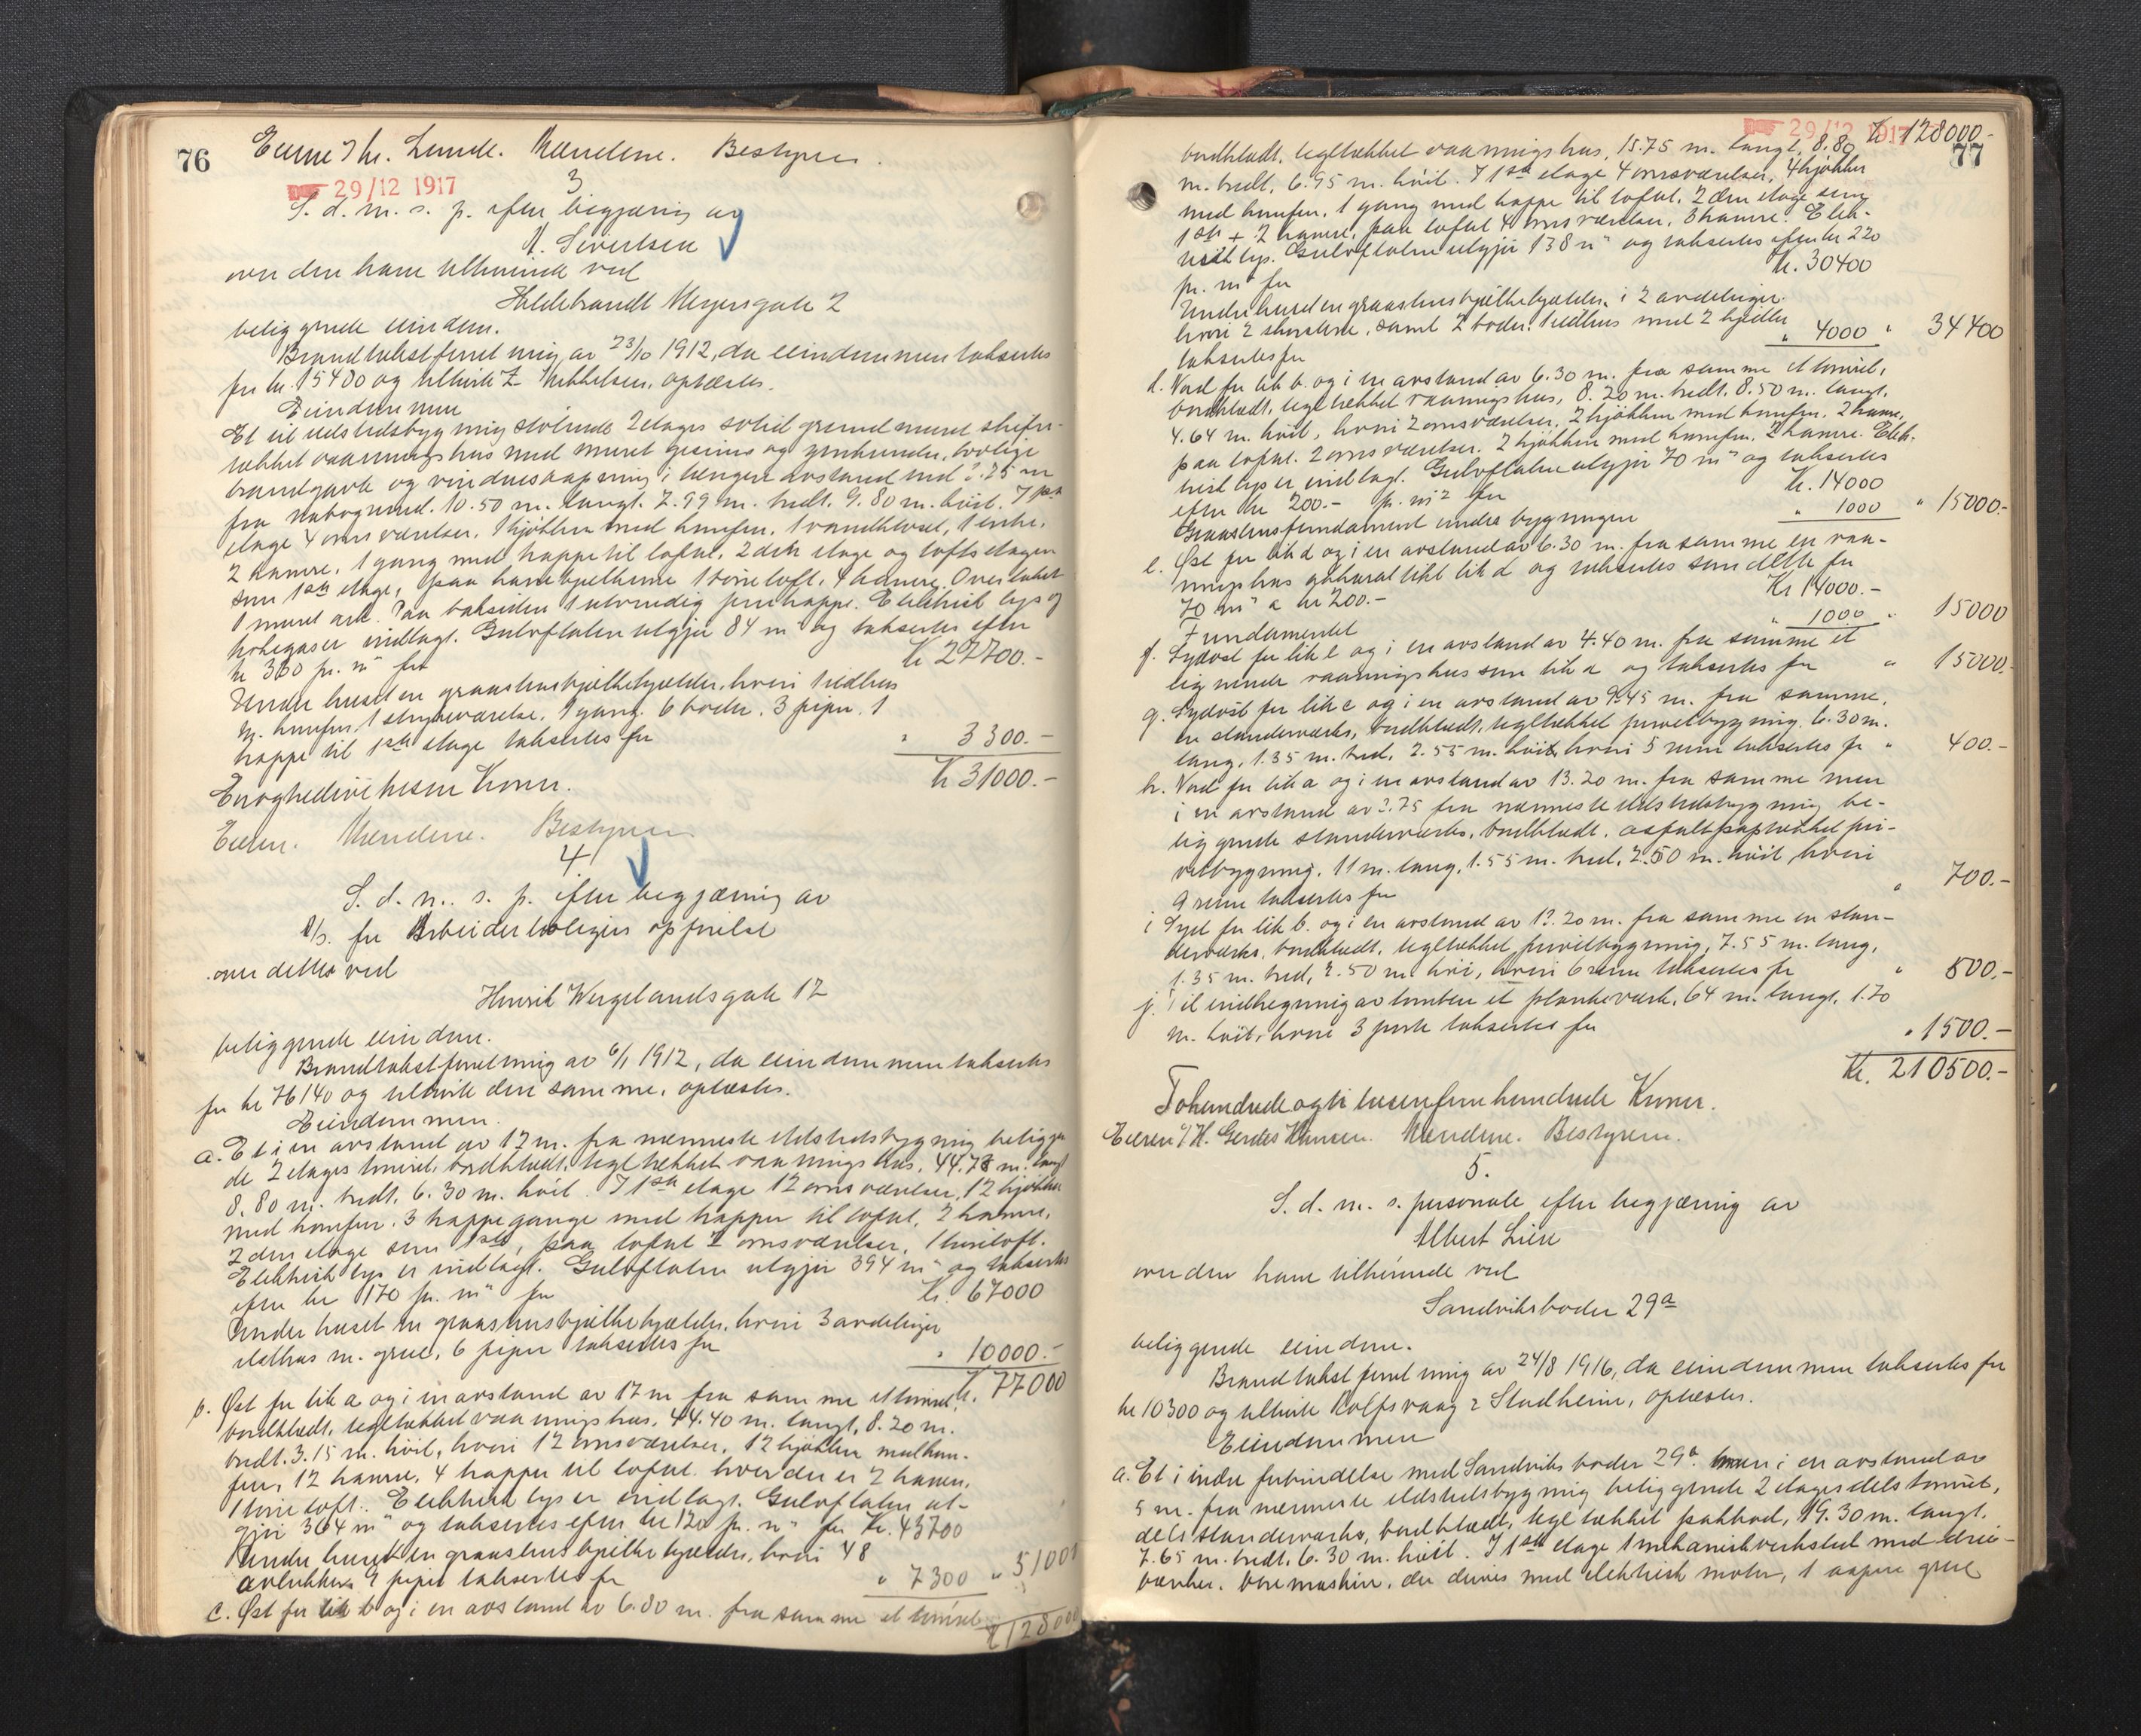 76
Eieren v/ hr. Lunde. Mændene. Bestyreren.
29/12 1917
3
S. d. m. s. p. efter begjæring av
N. Sivertsen
over den ham tilhørende ved
Hildebrandt Meyersgate 2
beliggende eiendom.
Brandtakstforretning av 23/10 1912, da eiendommen taksertes
for kr. 15400 og tilhørte Z. Mikkelsen, oplæstes.
Eiendommen
Et til ildstedsbygning støtende 2 etages solid grundmuret skifer-
tækket vaaningshus med muret gesims og
brandgavle og vindusaapning i længere avstand end 3.75 m
fra nabogrund. 10.50 m. langt. 7.99 m. bredt. 9.80 m. høit. I 1ste
etage 4 ovnsværelser, 1 kjøkken med komfur, 1 vandkloset, 1 entre,
2 kamre, 1 gang med trappe til loftet, 2den etage og loftsetagen
som 1ste etage, paa hanebjelkerne 1 tørreloft, 4 kamre. Over taket
1 muret ark. Paa baksiden 1 utvendig jerntrappe. Elektrisk lys og
kokegaser indlagt. Gulvflaten utgjør 84 m² og taksertes efter
kr 330 pr. m² for kr 27700.-
Under huset en graastensbjelkekjælder, hvori 1 ildhus
m. komfur, 1 strykeværelse, 1 gang. 6 boder. 3 piper. 1
trappe til 1ste etage taksertes for " 3300.-
Kr 31000.-
Enogtredivetusen Kroner.
Eieren. Mændene. Bestyreren
4
S. d. m. s. p. efter begjæring av
A/s. for Arbeiderboligers opførelse
over dettes ved
Henrik Wergelandsgate 12
beliggende eiendom.
Brandtakstforretning av 6/1 1912, da eiendommen taksertes
for kr 76140 og tilhørte den samme, oplæstes.
Eiendommen.
a. Et i en avstand av 12 m. fra nærmeste ildstedsbygning beliggen
de 2 etages tømret, bordklædt, tegltækket vaaningshus, 44.78 m. langt
8.80 m. bredt. 6.30 m. høit. I 1ste etage 12 ovnsværelser, 12 kjøkken
med komfur. 3 trappegange med trapper til loftet, 2 kamre,
2den etage som 1ste, paa loftet 2 ovnsværelser, 1 tørreloft.
Elektrisk lys er indlagt. Gulvflaten utgjør 394 m² og taksertes
efter kr 170 pr. m² for Kr. 67000
Under huset en graastensbjelkekjælder, hvori 3 avdelinger
ildhus m. grue, 6 piper taksertes for " 10000.-
Kr. 77000
b. Øst for litr a og i en avstand av 12 m fra samme et tømret,
bordklædt, tegltækket vaaningshus, 44.40 m. langt, 8.20 m.
bredt. 3.15 m. høit, hvori 12 ovnsværelser, 12 kjøkken med kom-
fur, 12 kamre, 4 trapper til loftet hvor der er 2 kamre,
1 tørreloft. Elektrisk lys er indlagt. Gulvflaten ut-
gjør 364 m² og taksertes efter kr 120 pr. m² for Kr. 43700
Under huset en graastensbjelkekjælder, hvori 48
avlukker 9 piper taksertes for " 7300 " 51000
c. Øst for litr b og i en avstand av 6.80 m. fra samme et tømret
Kr 128000
29/12 1917 Kr 128000-
77
bordklædt, tegltækket vaaningshus, 15.75 m. langt, 8.80
m. bredt, 6.95 m. høit. I 1ste etage 4 ovnsværelser, 4 kjøkken
med komfur, 1 gang med trappe til loftet, 2den etage som
1ste + 2 kamre, paa loftet 4 ovnsværelser, 3 kamre. Elek-
trisk lys. Gulvflaten utgjør 138 m² og taksertes efter kr 220
pr. m² for Kr. 30400
Under huset en graastensbjelkekjælder, i 2 avdelinger
hvori 2 skorstene, samt 2 boder. 1 ildhus med 2 kjedler
taksertes for " 4000 " 34400
d. Nord for litr b. og i en avstand av 6.30 m. fra samme et tømret,
bordklædt, tegltækket vaaningshus, 8.20 m. bredt, 8.50 m. langt,
4.64 m. høit, hvori 2 ovnsværelser, 2 kjøkken med komfur, 2 kamre,
paa loftet 2 ovnsværelser, 2 kjøkken med komfur, 2 kamre. Elek-
trisk lys er indlagt. Gulvflaten utgjør 70 m² og taksertes
efter kr 200.- pr. m² for Kr. 14000
Graastensfundament under bygningen " 1000 " 15000.-
e. Øst for litr d og i en avstand av 6.30 m. fra samme en vaa-
ningshus akkurat likt litr d og taksertes som dette for
70 m² a kr 200.- Kr 14000.-
Fundamentet " 1000 " 15000
f. Sydost for litr e og i en avstand av 4.40 m. fra samme et
lignende vaaningshus som litr d og taksertes for " 15000.-
g. Sydost for litr c og i en avstand av 9.45 m. fra samme,
en standerværks, bordklædt, tegltækket privetbygning, 6.30 m.
lang, 1.35 m. bred, 2.55 m. høit, hvori 5 rum taksertes for " 400.-
h. Nord for litr a og i en avstand av 13.20 m. fra samme men
i en avstand av 3.75 fra nærmeste ildstedsbygning be-
liggende standerværks, bordklædt, asfaltpaptækket pri-
vetbygning, 11 m. lang, 1.55 m. bred, 2.50 m. høit, hvori
9 rum taksertes for " 700.-
i Syd for litr b. og i en avstand av 12.20 m. fra samme en stan-
derværks, bordklædt, tegltækket privetbygning, 7.55 m. lang,
1.35 m. bred, 2.50 m. høi, hvori 6 rum taksertes for " 500.-
j. Til indhegning av tomten et plankeværk, 64 m. langt, 1.70
m. høit, hvori 3 porte taksertes for " 1500.-
Kr. 210500.-
Tohundredeogti tusen fem hundrede Kroner.
Eieren v/ H. Gerdes Hansen. Mændene. Bestyreren.
5.
S. d. m. s. personale efter begjæring av
Albert Lien
over den ham tilhørende ved
Sandviksboder 29a
beliggende eiendom.
Brandtakstforretning av 24/8 1916, da eiendommen taksertes for
kr 10300 og tilhørte Rolfsvaag & Stadheim, oplæstes.
Eiendommen
a. Et i indre forbindelse med Sandviksboder 29b. men i en avstand av
5 m. fra nærmeste ildstedsbygning beliggende 2 etages dels tømret,
dels standerværks, bordklædt, tegltækket pakbod, 19.30 m. langt,
7.65 m. bredt, 6.30 m. høit. I 1ste etage 1 mekanisk verksted med dreie-
bænker, boremaskin, der drives med elektrisk motor, 1 aapen grue